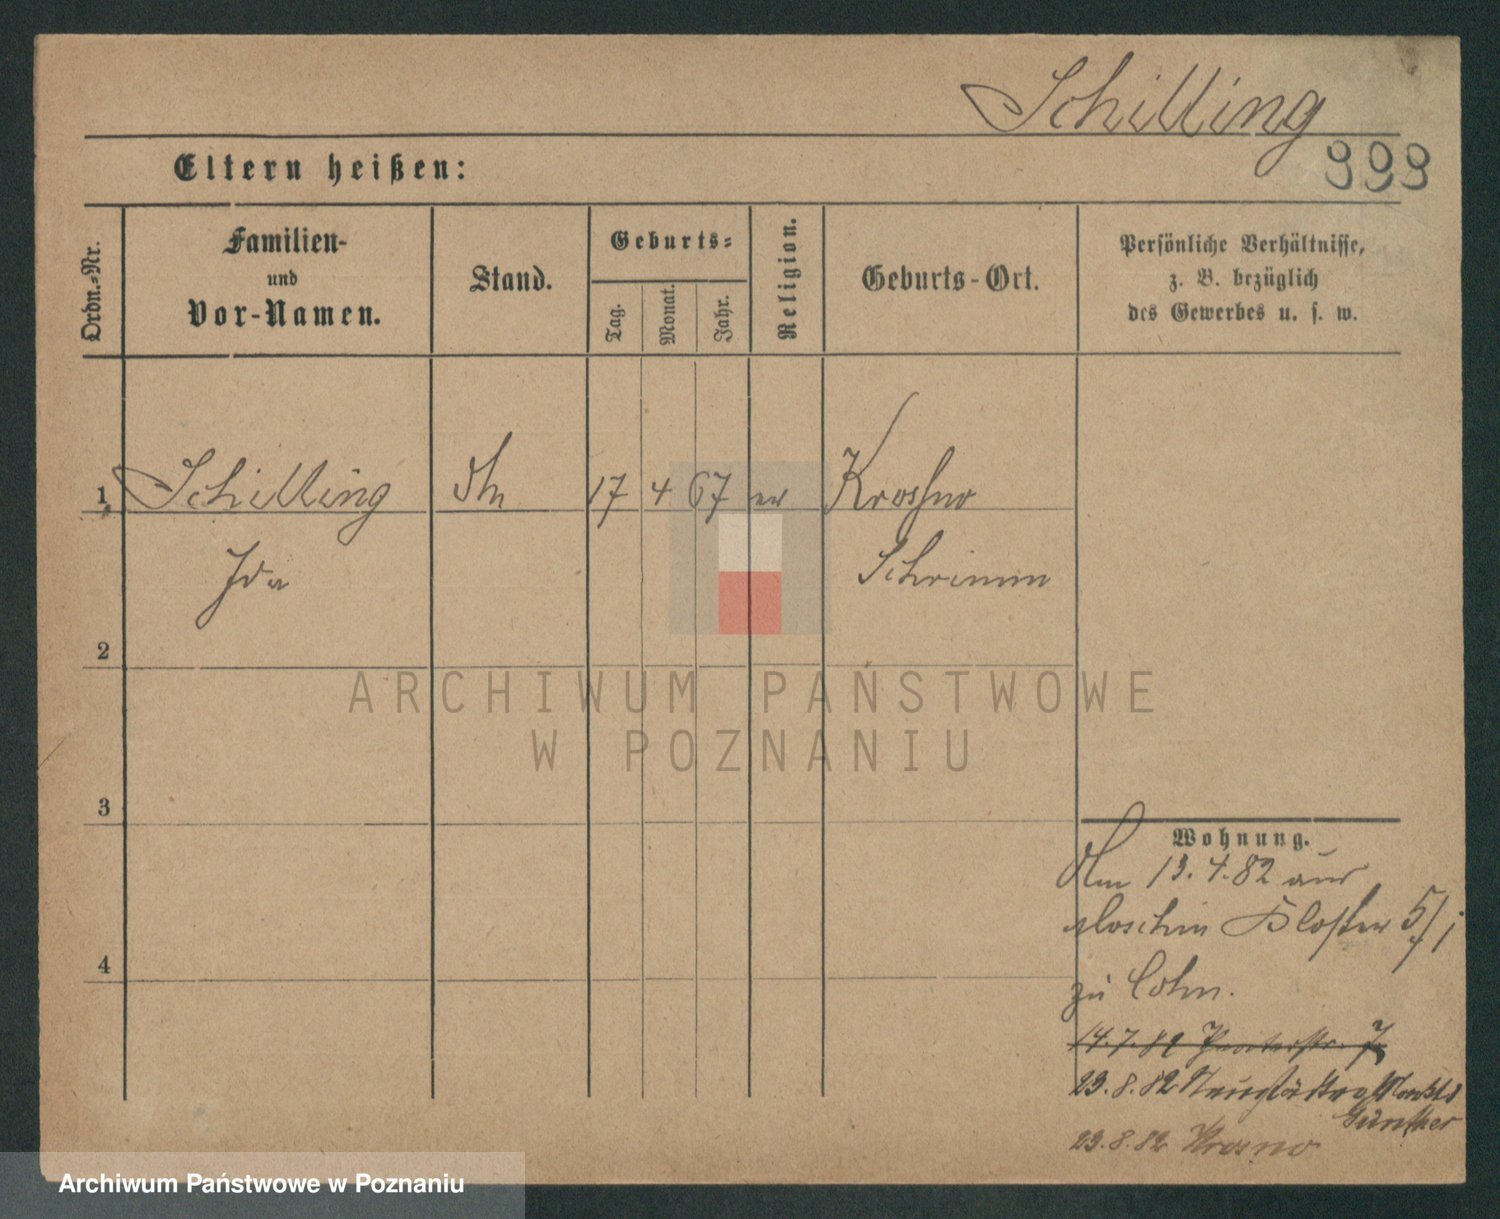 Schilling
999
Eltern heißen:
Ordn.-Nr.
Familien-
und
Vor-Namen.
Stand.
Geburts-
Tag.
Monat.
Jahr.
Religion.
Geburts-Ort.
Persönliche Verhältnisse,
z. B. bezüglich
des Gewerbes u. s. w.
1 Schilling 17 4 67 ev Kroshno
Ida Schrimm
2
ARCHIWUM PAŃSTWOWE
W POZNANIU
3
Wohnung.
13.4.82 aus
Moschin Kloster 5/
zu Cohn.
14.7.82 7
23.8.82 Neustädter Markt
Günther
23.8.82 Krosno
4
Archiwum Państwowe w Poznaniu